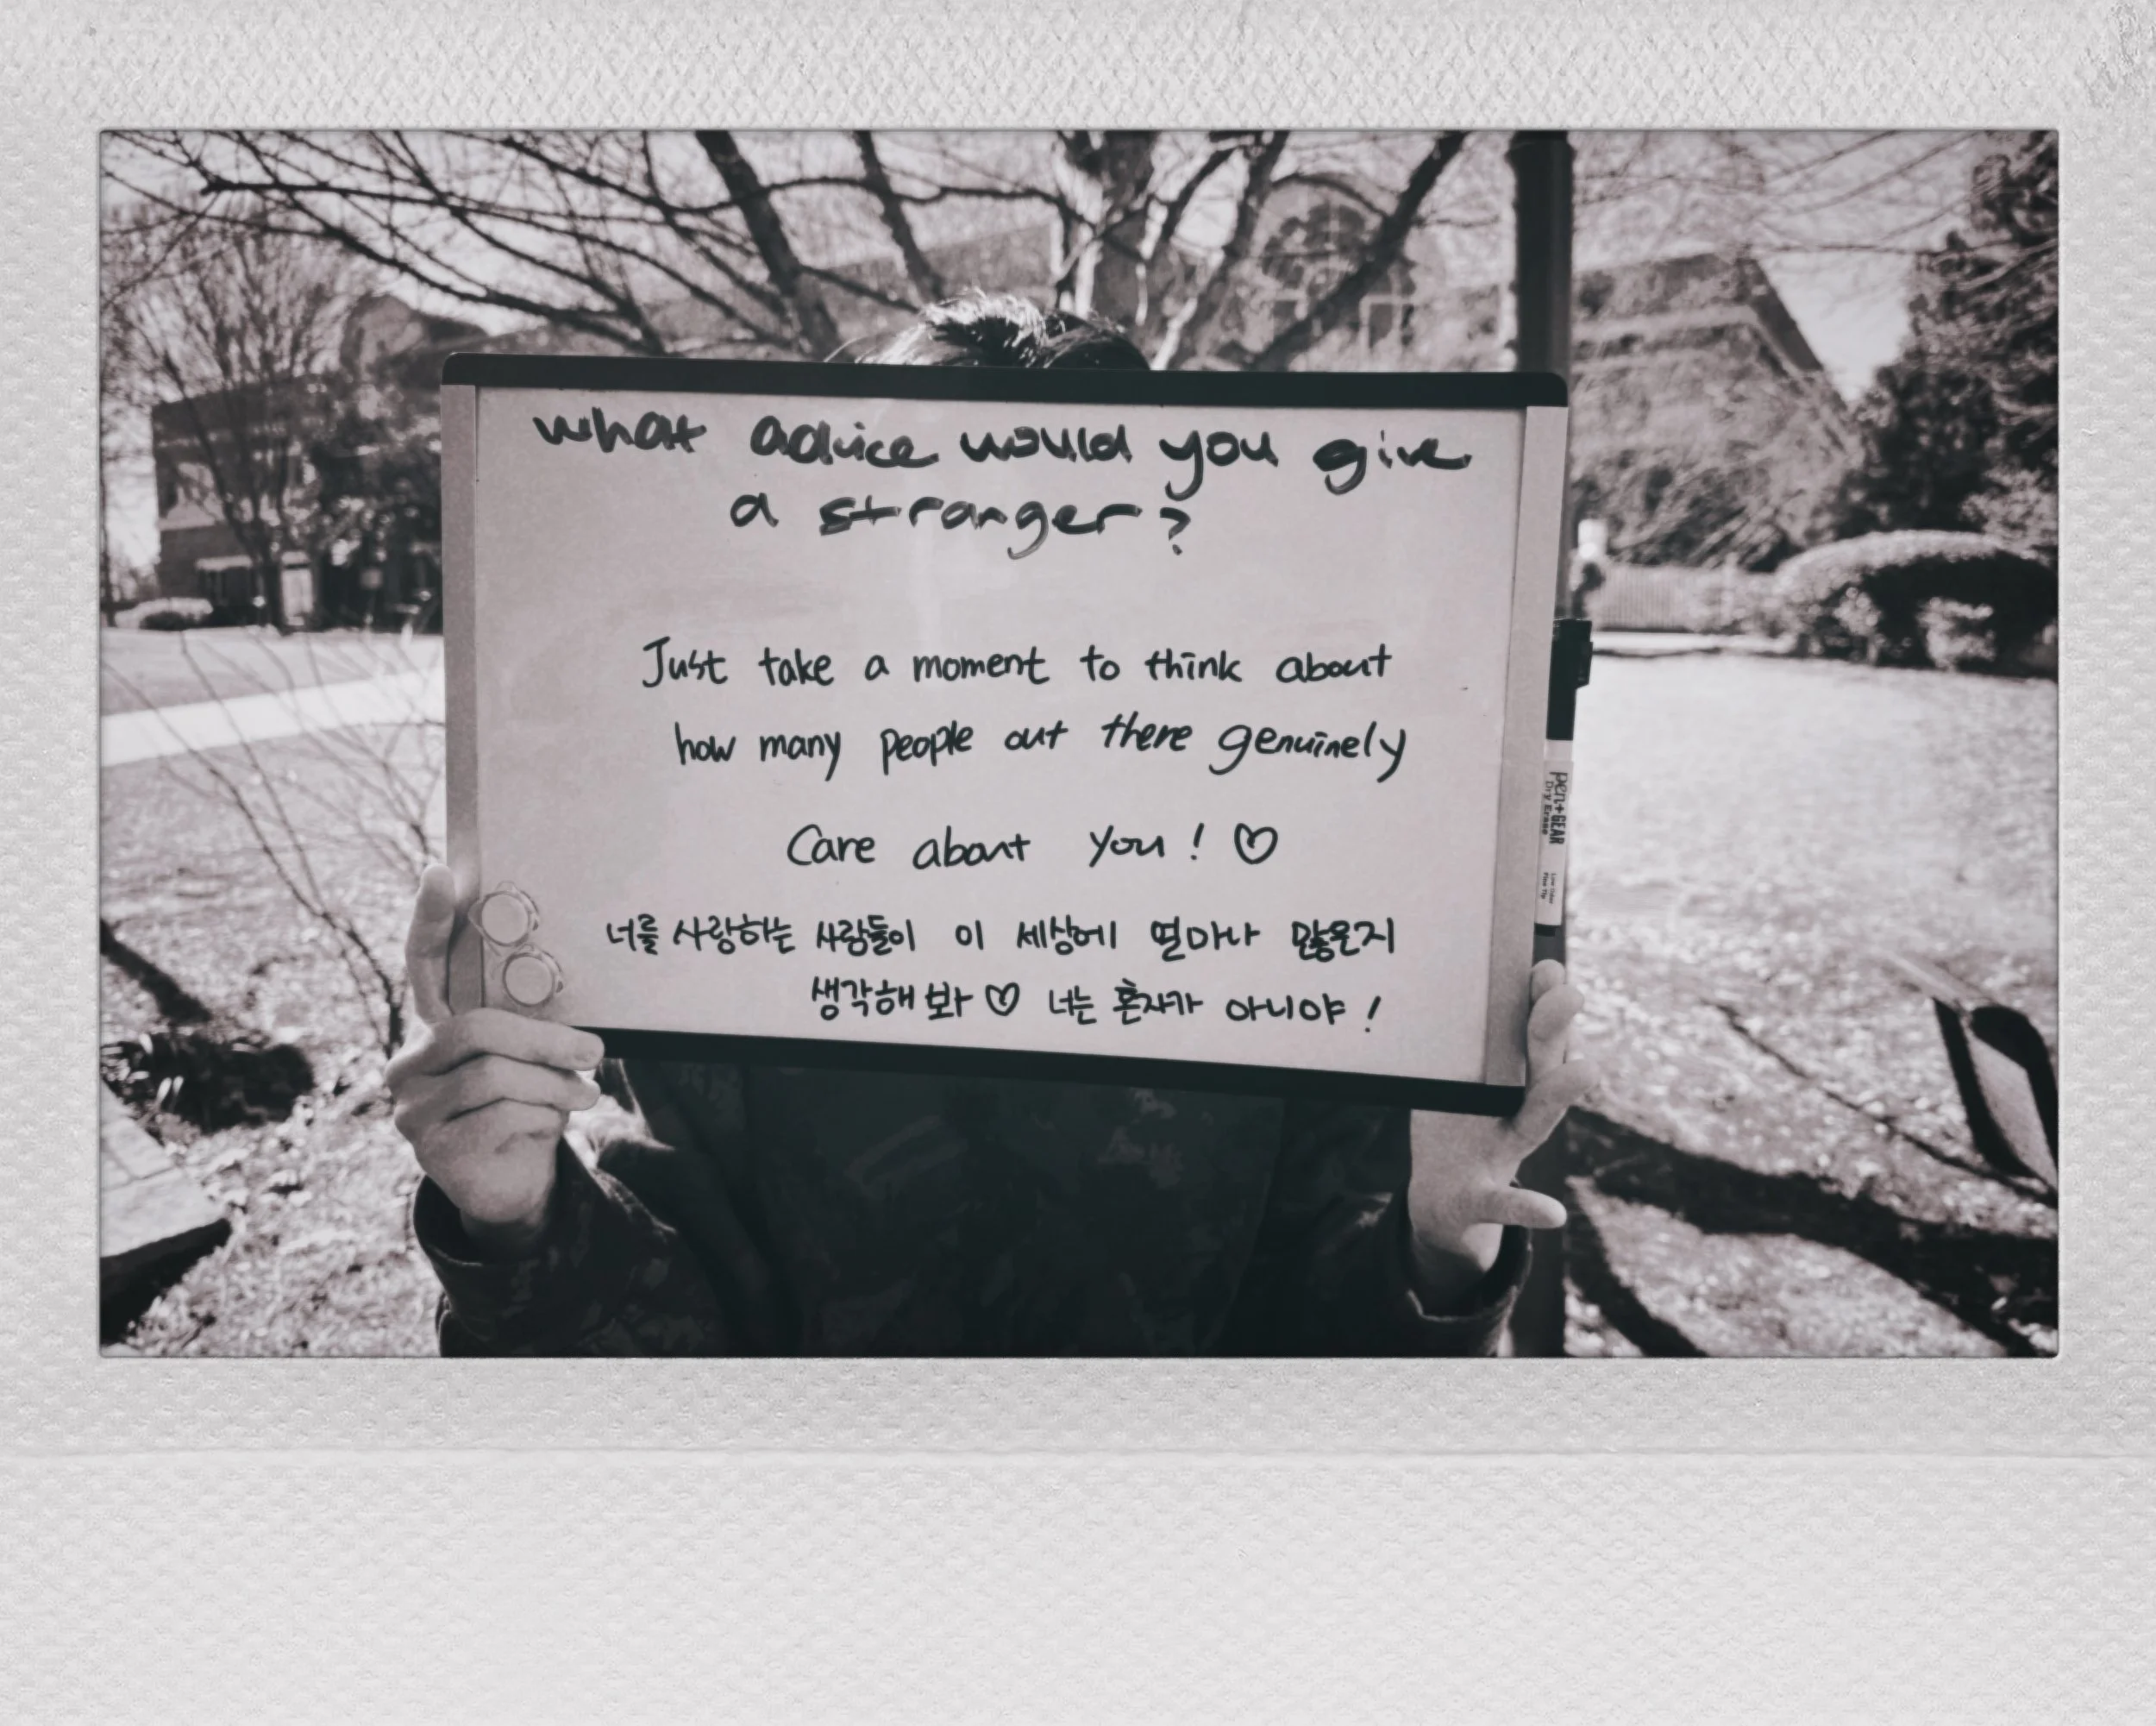 what advice would you give
a stranger?
Just take a moment to think about
how many people out there genuinely
Care about you! ♡
너를 사랑하는 사람들이 이 세상에 얼마나 많은지
생각해 봐 ♡ 너는 혼자가 아니야!
Pen+GEAR
Dry Erase